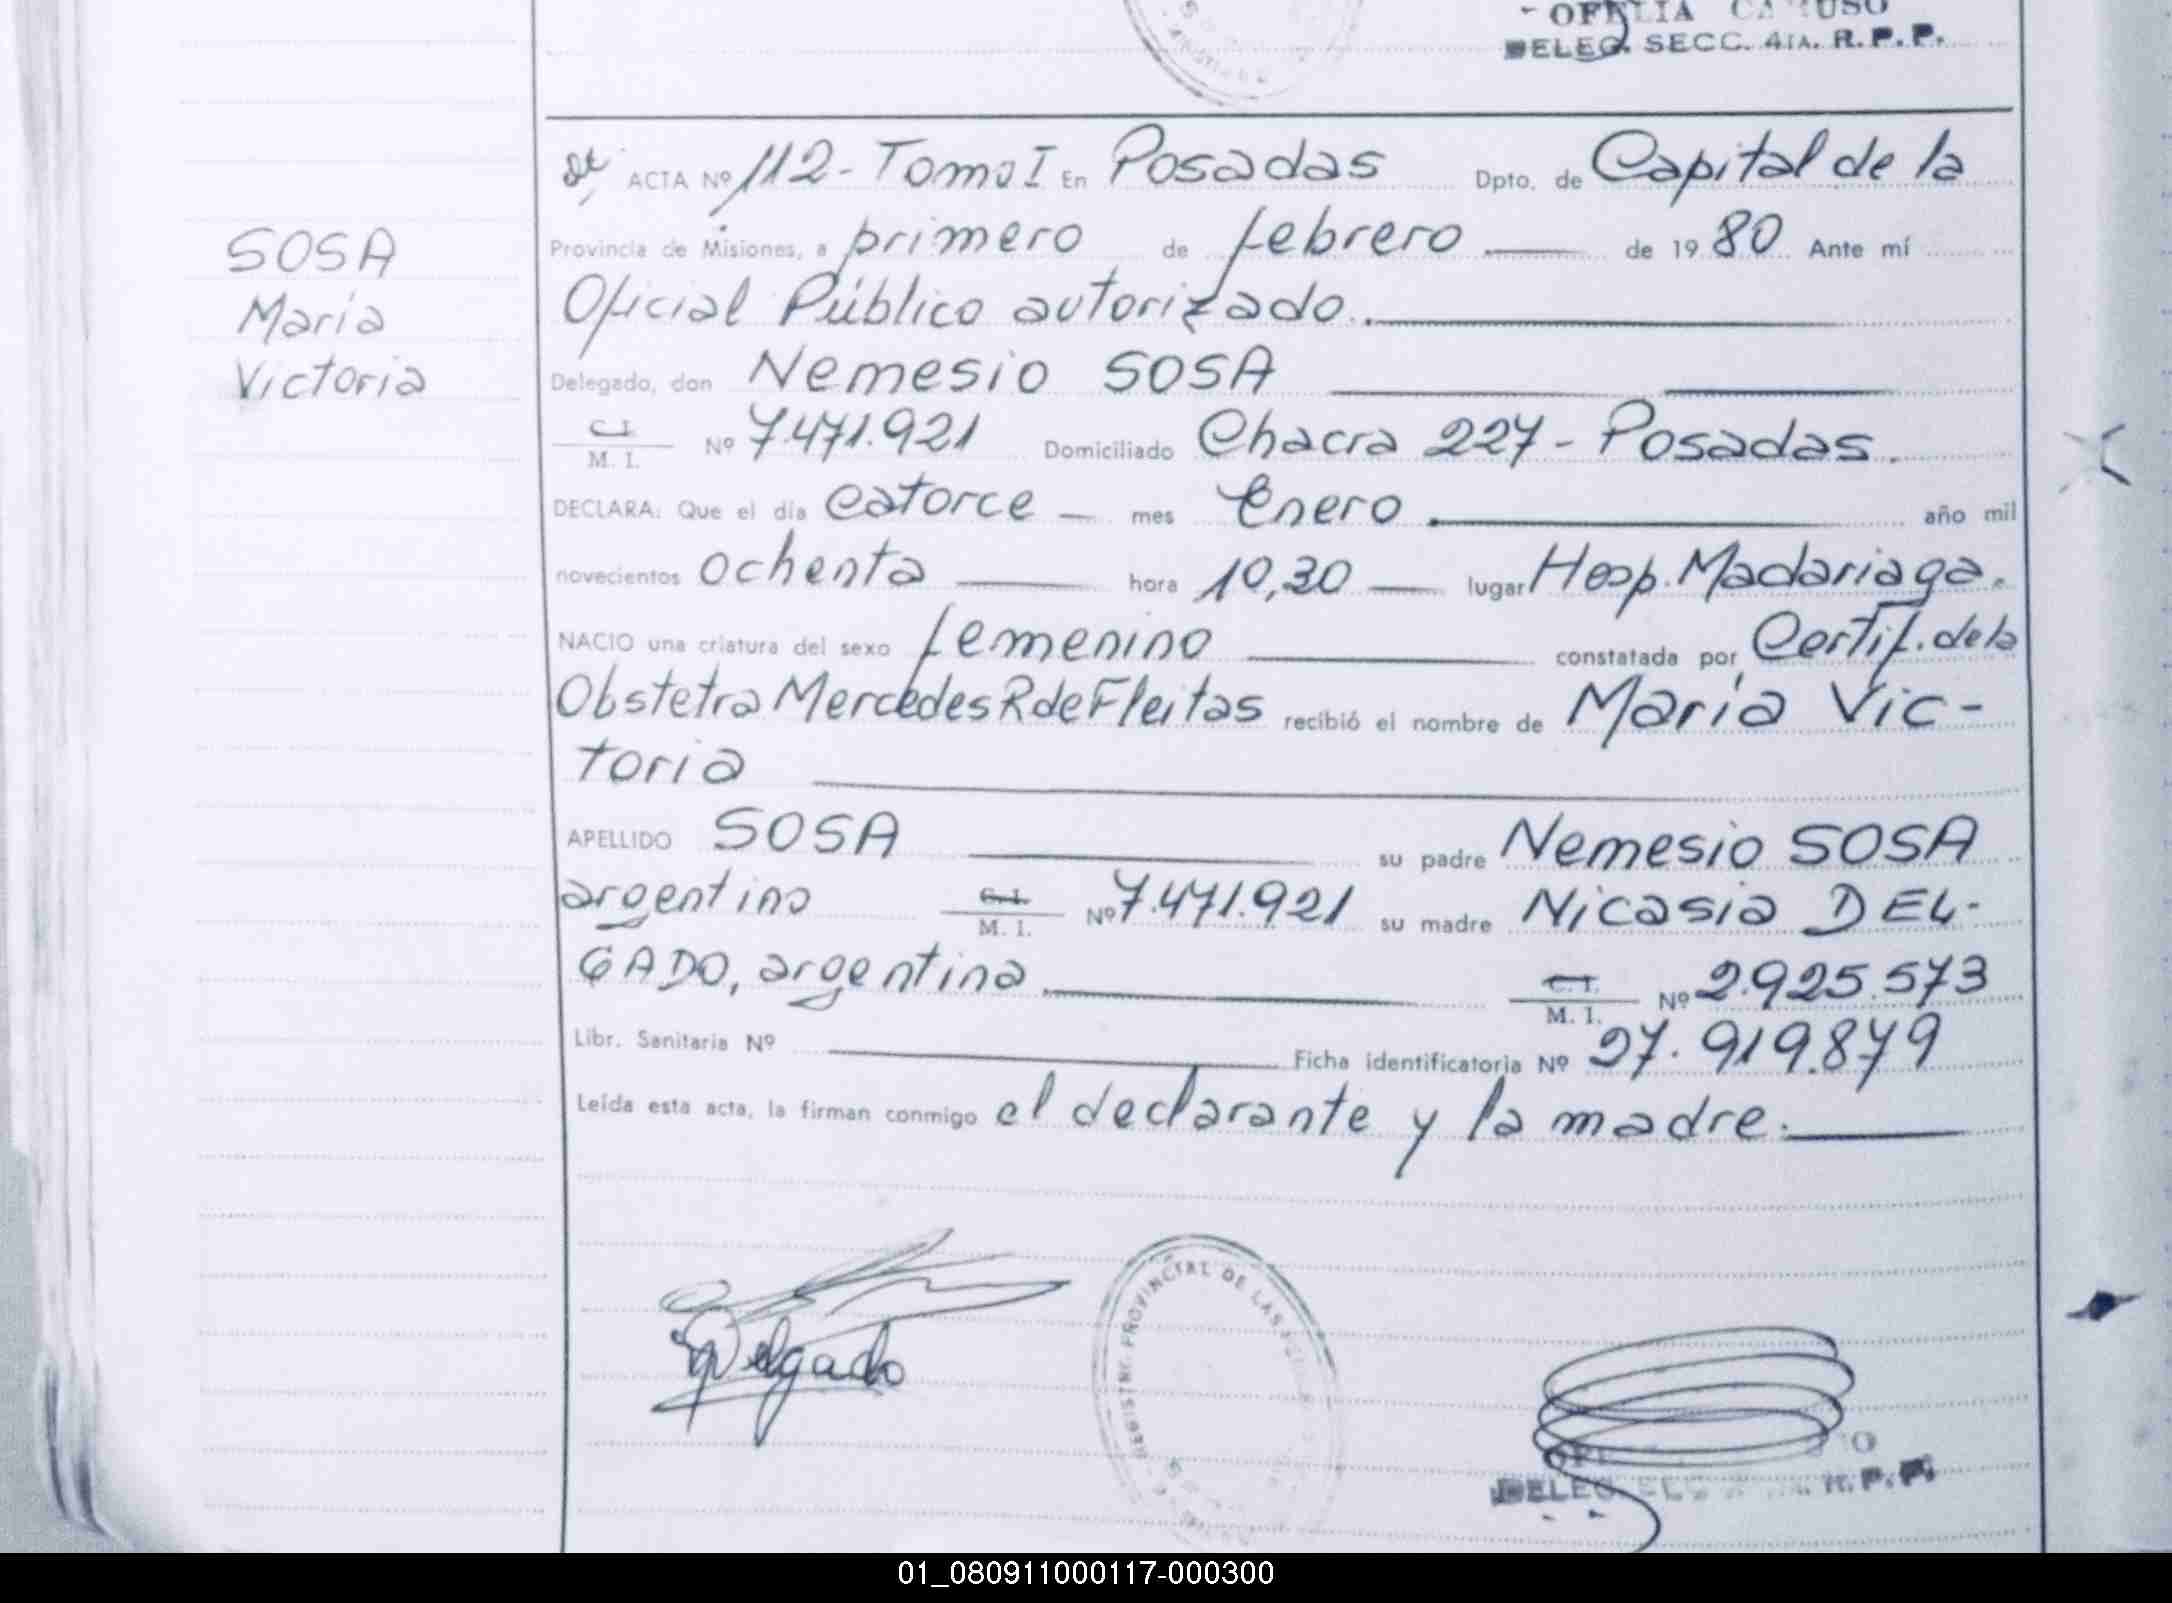 - OFELIA CARUSO
DELEG. SECC. 4TA. R.P.P.
ACTA Nº 112 - Tomo I En Posadas Dpto. de Capital de la
SOSA
María
Victoria
Provincia de Misiones, a primero de febrero de 1980 Ante mí
Oficial Público autorizado.
Delegado, don Nemesio SOSA
C. I.
M. I. Nº 7.471.921 Domiciliado Chacra 227 - Posadas.
DECLARA: Que el día Catorce — mes Enero. año mil
novecientos ochenta — hora 10,30 — lugar Hosp. Madariaga.
NACIO una criatura del sexo femenino constatada por Certif. de la
Obstetra Mercedes R de Fleitas recibió el nombre de María Vic-
toria
APELLIDO SOSA su padre Nemesio SOSA
argentino C. I. M. I. Nº 7.471.921 su madre Nicasia DEL-
GADO, argentina. C. I. M. I. Nº 2.925.573
Libr. Sanitaria Nº Ficha identificatoria Nº 27.919.879
Leída esta acta, la firman conmigo el declarante y la madre.
Delgado
REGISTRO PROVINCIAL DE LAS
DELEG R.P.P.
01_080911000117-000300